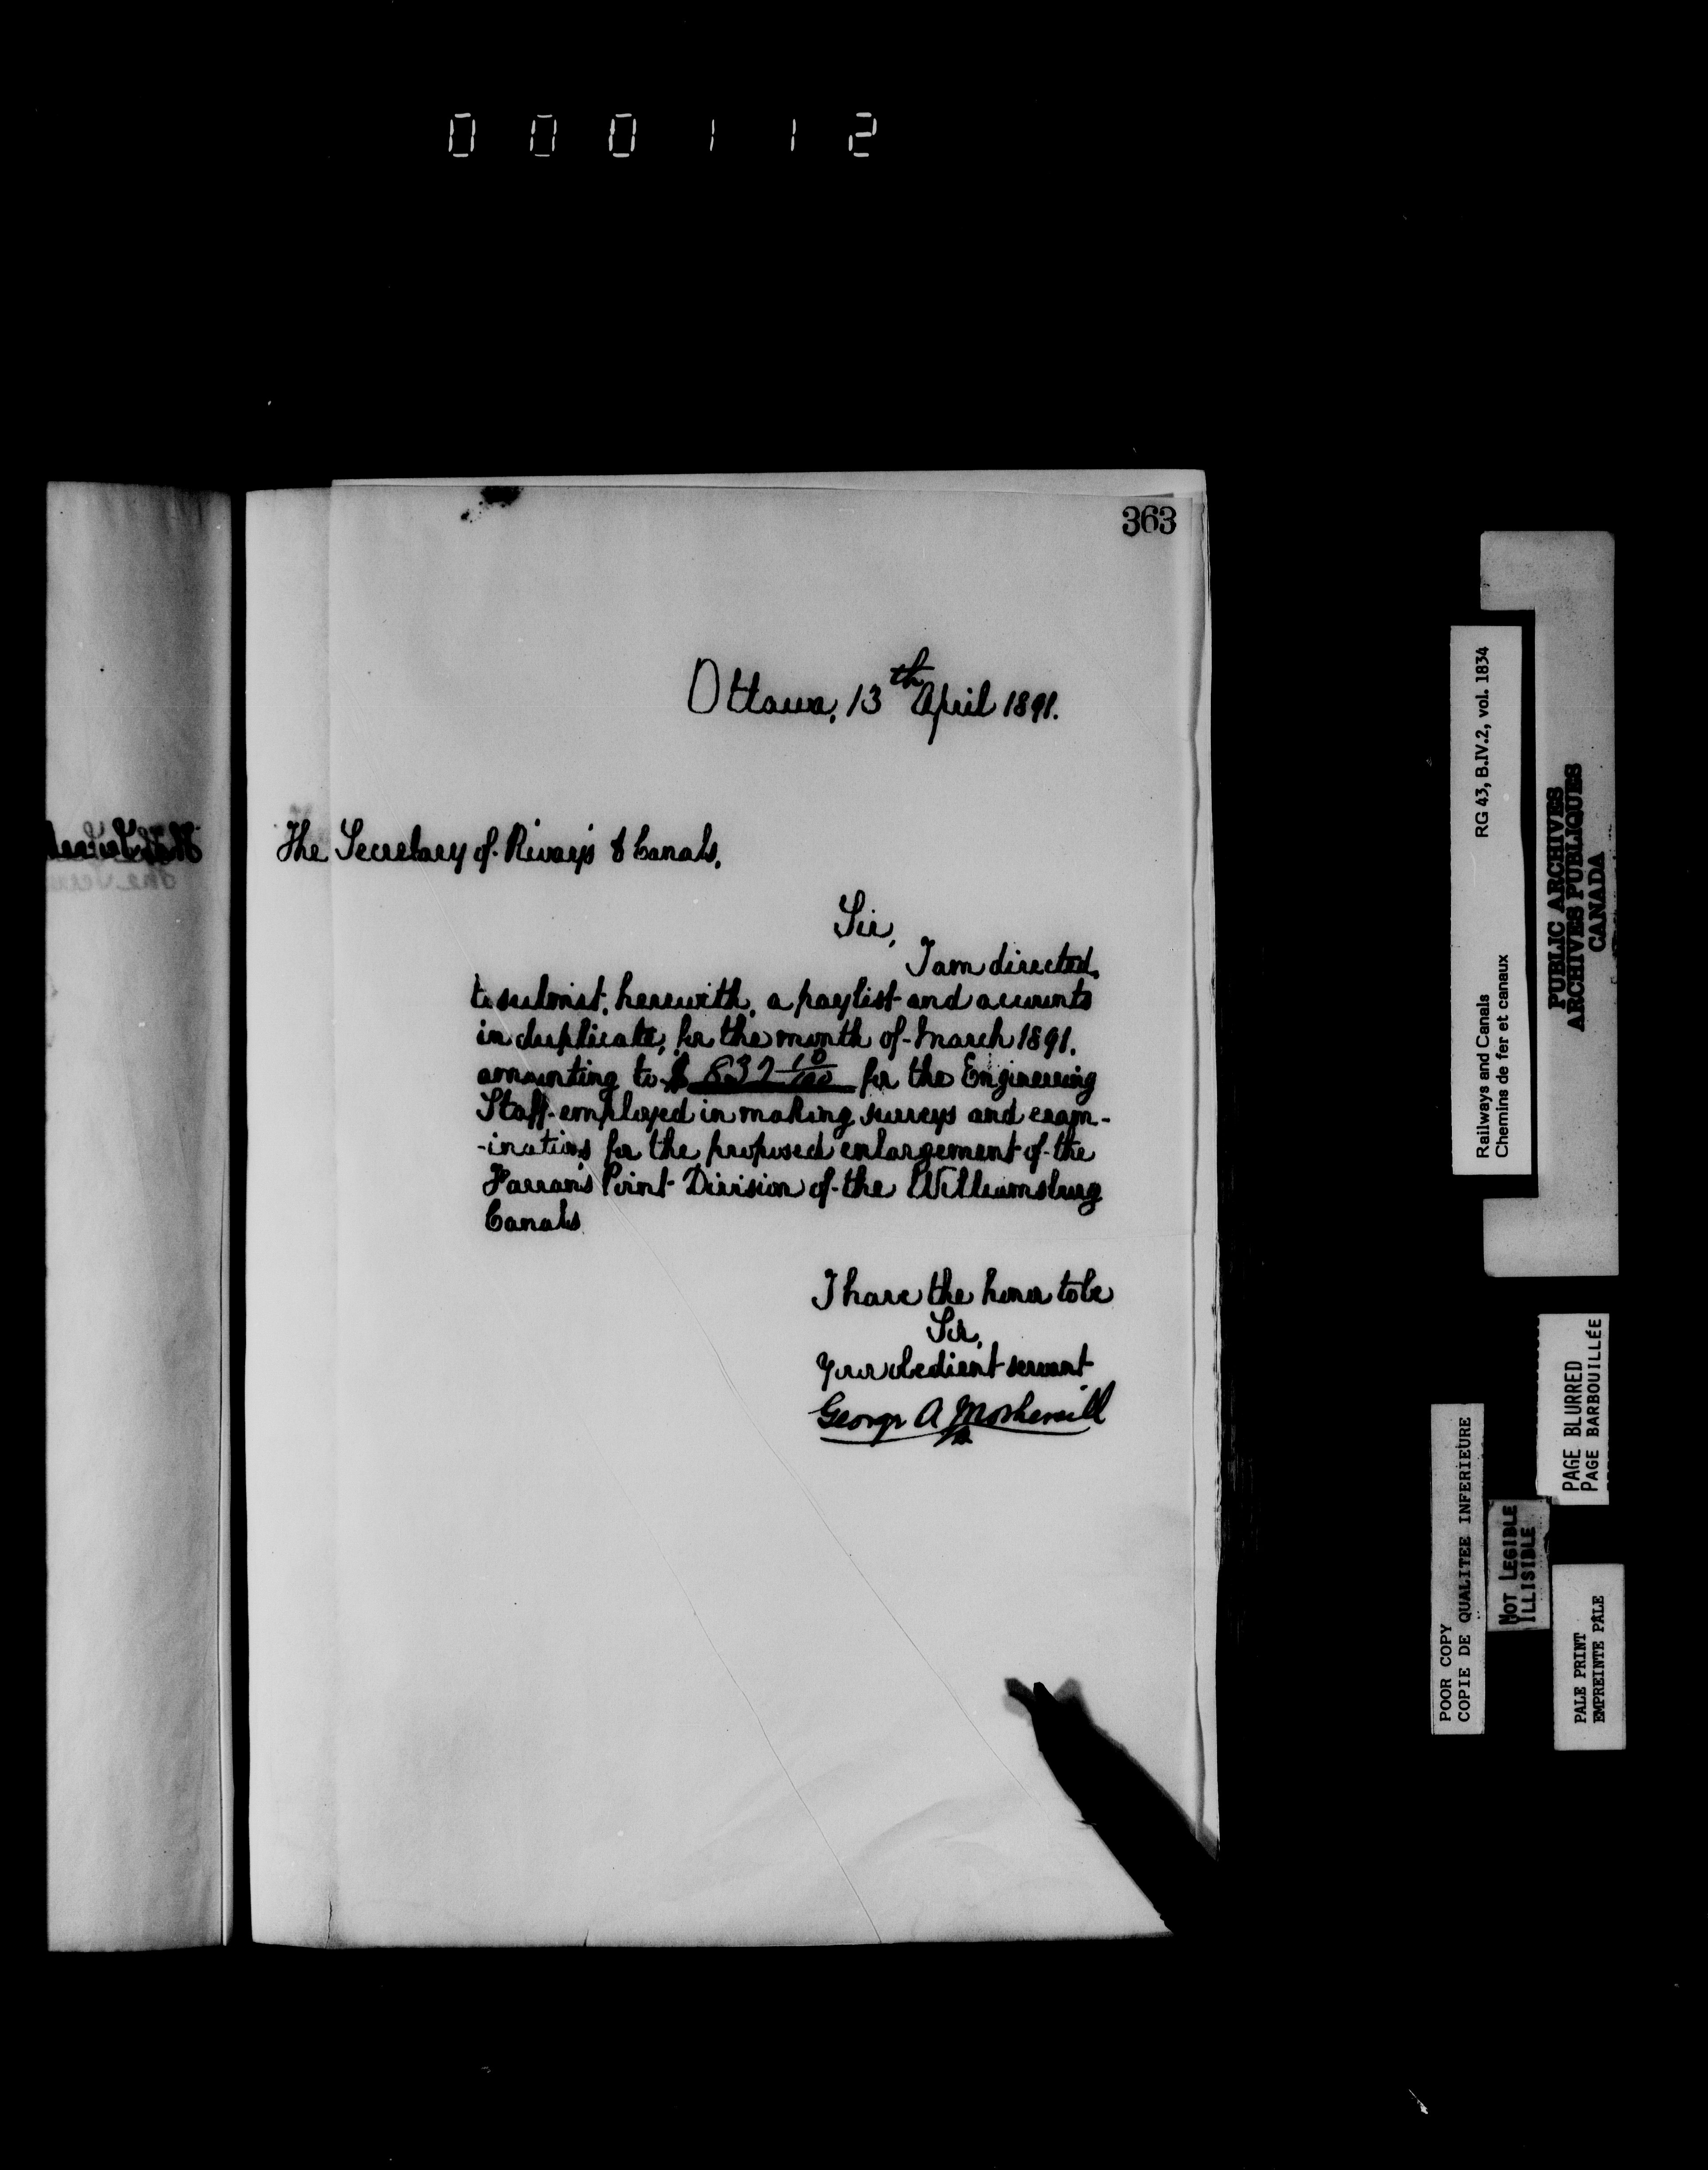 000112
363
Ottawa, 13th April 1891.
The Secretary of Rlways & Canals.
Sir,
I am directed
to submit, herewith, a paylist and accounts
in duplicate, for the month of March 1891.
amounting to $ 832 10/100 for the Engineering
Staff employed in making surveys and exam-
-inations for the proposed enlargement of the
Farran's Point Division of the Williamsburg
Canals
I have the honor to be
Sir,
Your obedient servant
George A
RG 43, B.IV.2, vol. 1834
Railways and Canals
Chemins de fer et canaux
PUBLIC ARCHIVES
ARCHIVES PUBLIQUES
CANADA
PAGE BLURRED
PAGE BARBOUILLÉE
POOR COPY
COPIE DE QUALITEE INFERIEURE
NOT LEGIBLE
ILLISIBLE
PALE PRINT
EMPREINTE PÂLE